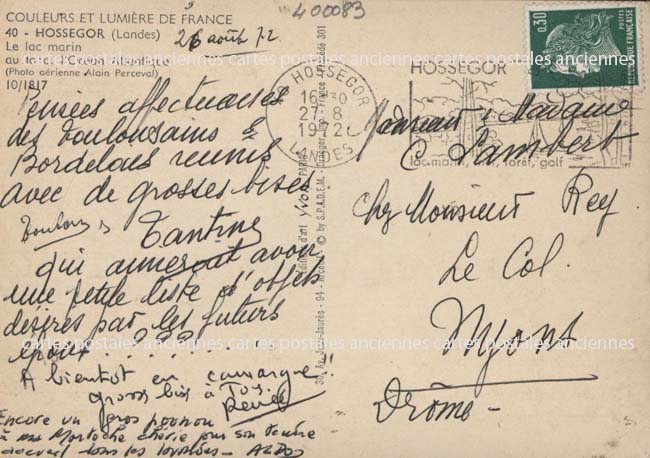 COULEURS ET LUMIÈRE DE FRANCE
40 - HOSSEGOR (Landes)
Le lac marin
au fond, l'Océan Atlantique
(Photo aérienne Alain Perceval)
10/1817
26 août 72
400083
Pensées affectueuses
des Toulousains &
Bordelais réunis
avec de grosses bises
Tantine
qui aimerait avoir
une petite liste d'objets
désirés par les futurs
époux...???....
A bientôt en camargue!!
gross bis à Tous
Renée
Encore un gros poutou
à ma chérie pour son tendre
accueil tous les
HOSSEGOR
16H30
27-8
1972
LANDES
HOSSEGOR
lac marin, mer, forêt, golf
0,30
RÉPUBLIQUE FRANÇAISE
Éditions d'art YVON PARIS
30, Av. Jean-Jaurès - 94 - Arcueil © by S.P.A.D.E.M.
Mademoiselle Martine
Lambert
chez Monsieur Rey
Le Col.
Nyons
Drôme-
cartes postales anciennes cartes postales anciennes cartes postales anciennes